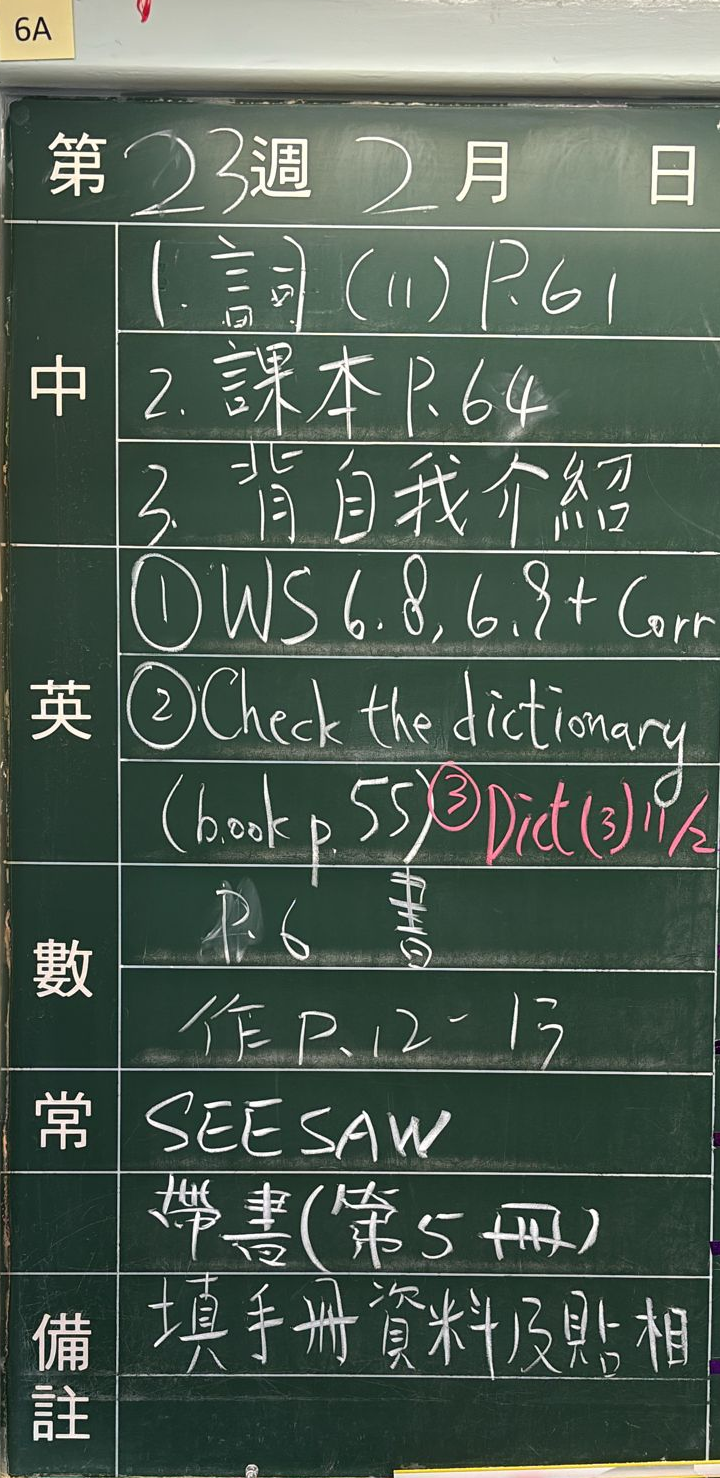 6A
第23週 2月 日
中
1. 詞(11) P.61
2. 課本 P.64
3. 背自我介紹
英
① WS 6.8, 6.9 + Corr
② Check the dictionary
(book p. 55) ③ Dict (3) 11/2
數
P.6 書
作 P.12-13
常
SEESAW
帶書(第5冊)
備註
填手冊資料及貼相